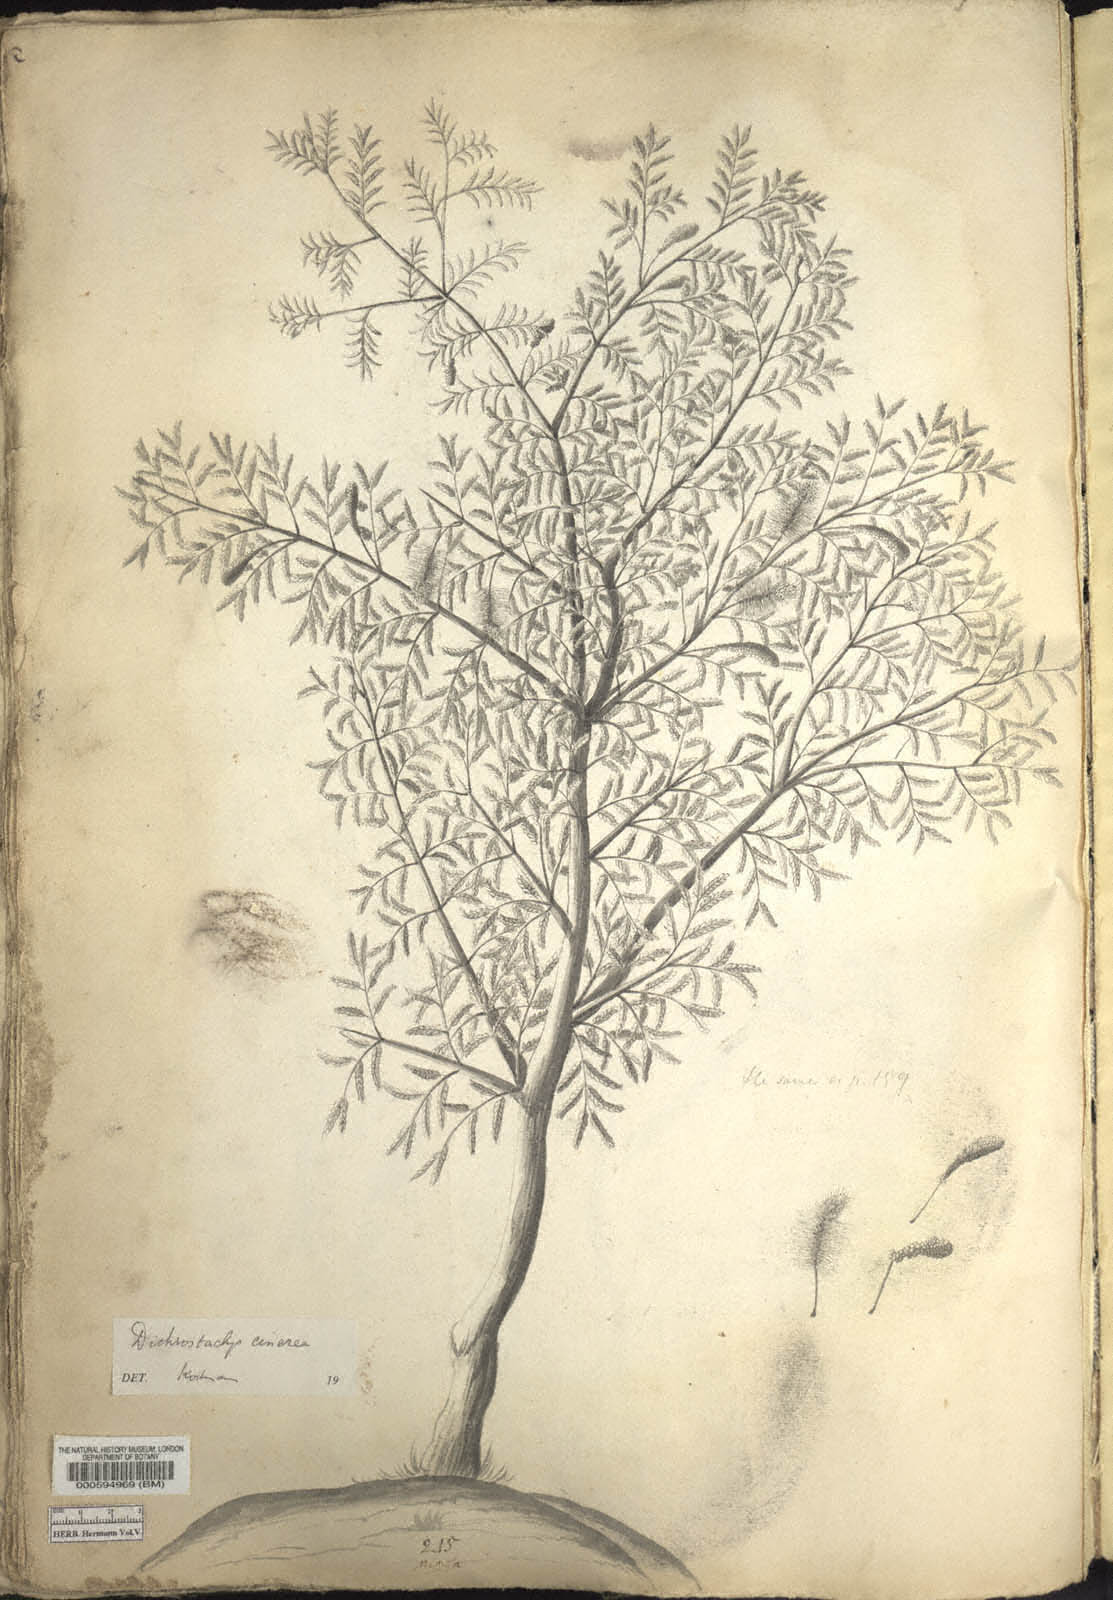 The same as p. 159
Dichrostachys cinerea
DET. 19
THE NATURAL HISTORY MUSEUM, LONDON
DEPARTMENT OF BOTANY
000594969 (BM)
HERB. Hermann Vol.V.
215